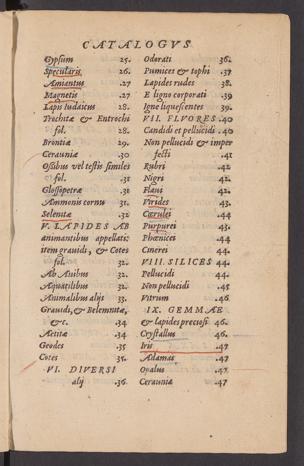 CATALOGVS
Gypsum 25.
Specularis 26.
Amiantus 27.
Magnetis 27.
Lapis Iudaicus 28.
Trochitæ & Entrochi
fol. 28.
Brontiæ 29.
Cerauniæ .30
Ossibus vel testis similes
fol. .31
Glossopetræ .31
Ammonis cornu 31.
Selenitæ .32
V. LAPIDES AB
animantibus appellati:
item grauidi, & Cotes
fol. 32.
Ab Auibus 32.
Aquatilibus 32.
Animalibus alijs 33.
Grauidi, & Belemnitæ,
&c. .34
Aetitæ .34
Geodes .35
Cotes 35.
VI. DIVERSI
alij .36.
Odorati 36.
Pumices & tophi .37
Lapides rudes 38.
E ligno corporati .39
Igne liquescentes 39.
VII. FLVORES .40
Candidi et pellucidi .40
Non pellucidi & imper
fecti .41
Rubri 42.
Nigri 42.
Flaui 42.
Virides 43.
Cærulei .44
Purpurei 43.
Phœnicei .44
Cinerei 44.
VIII. SILICES 44.
Pellucidi 44.
Non pellucidi .45
Vitrum .46
IX. GEMMAE
& lapides preciosi 46.
Crystallus 46.
Iris .47
Adamas .47
Opalus .47
Cerauniæ .47